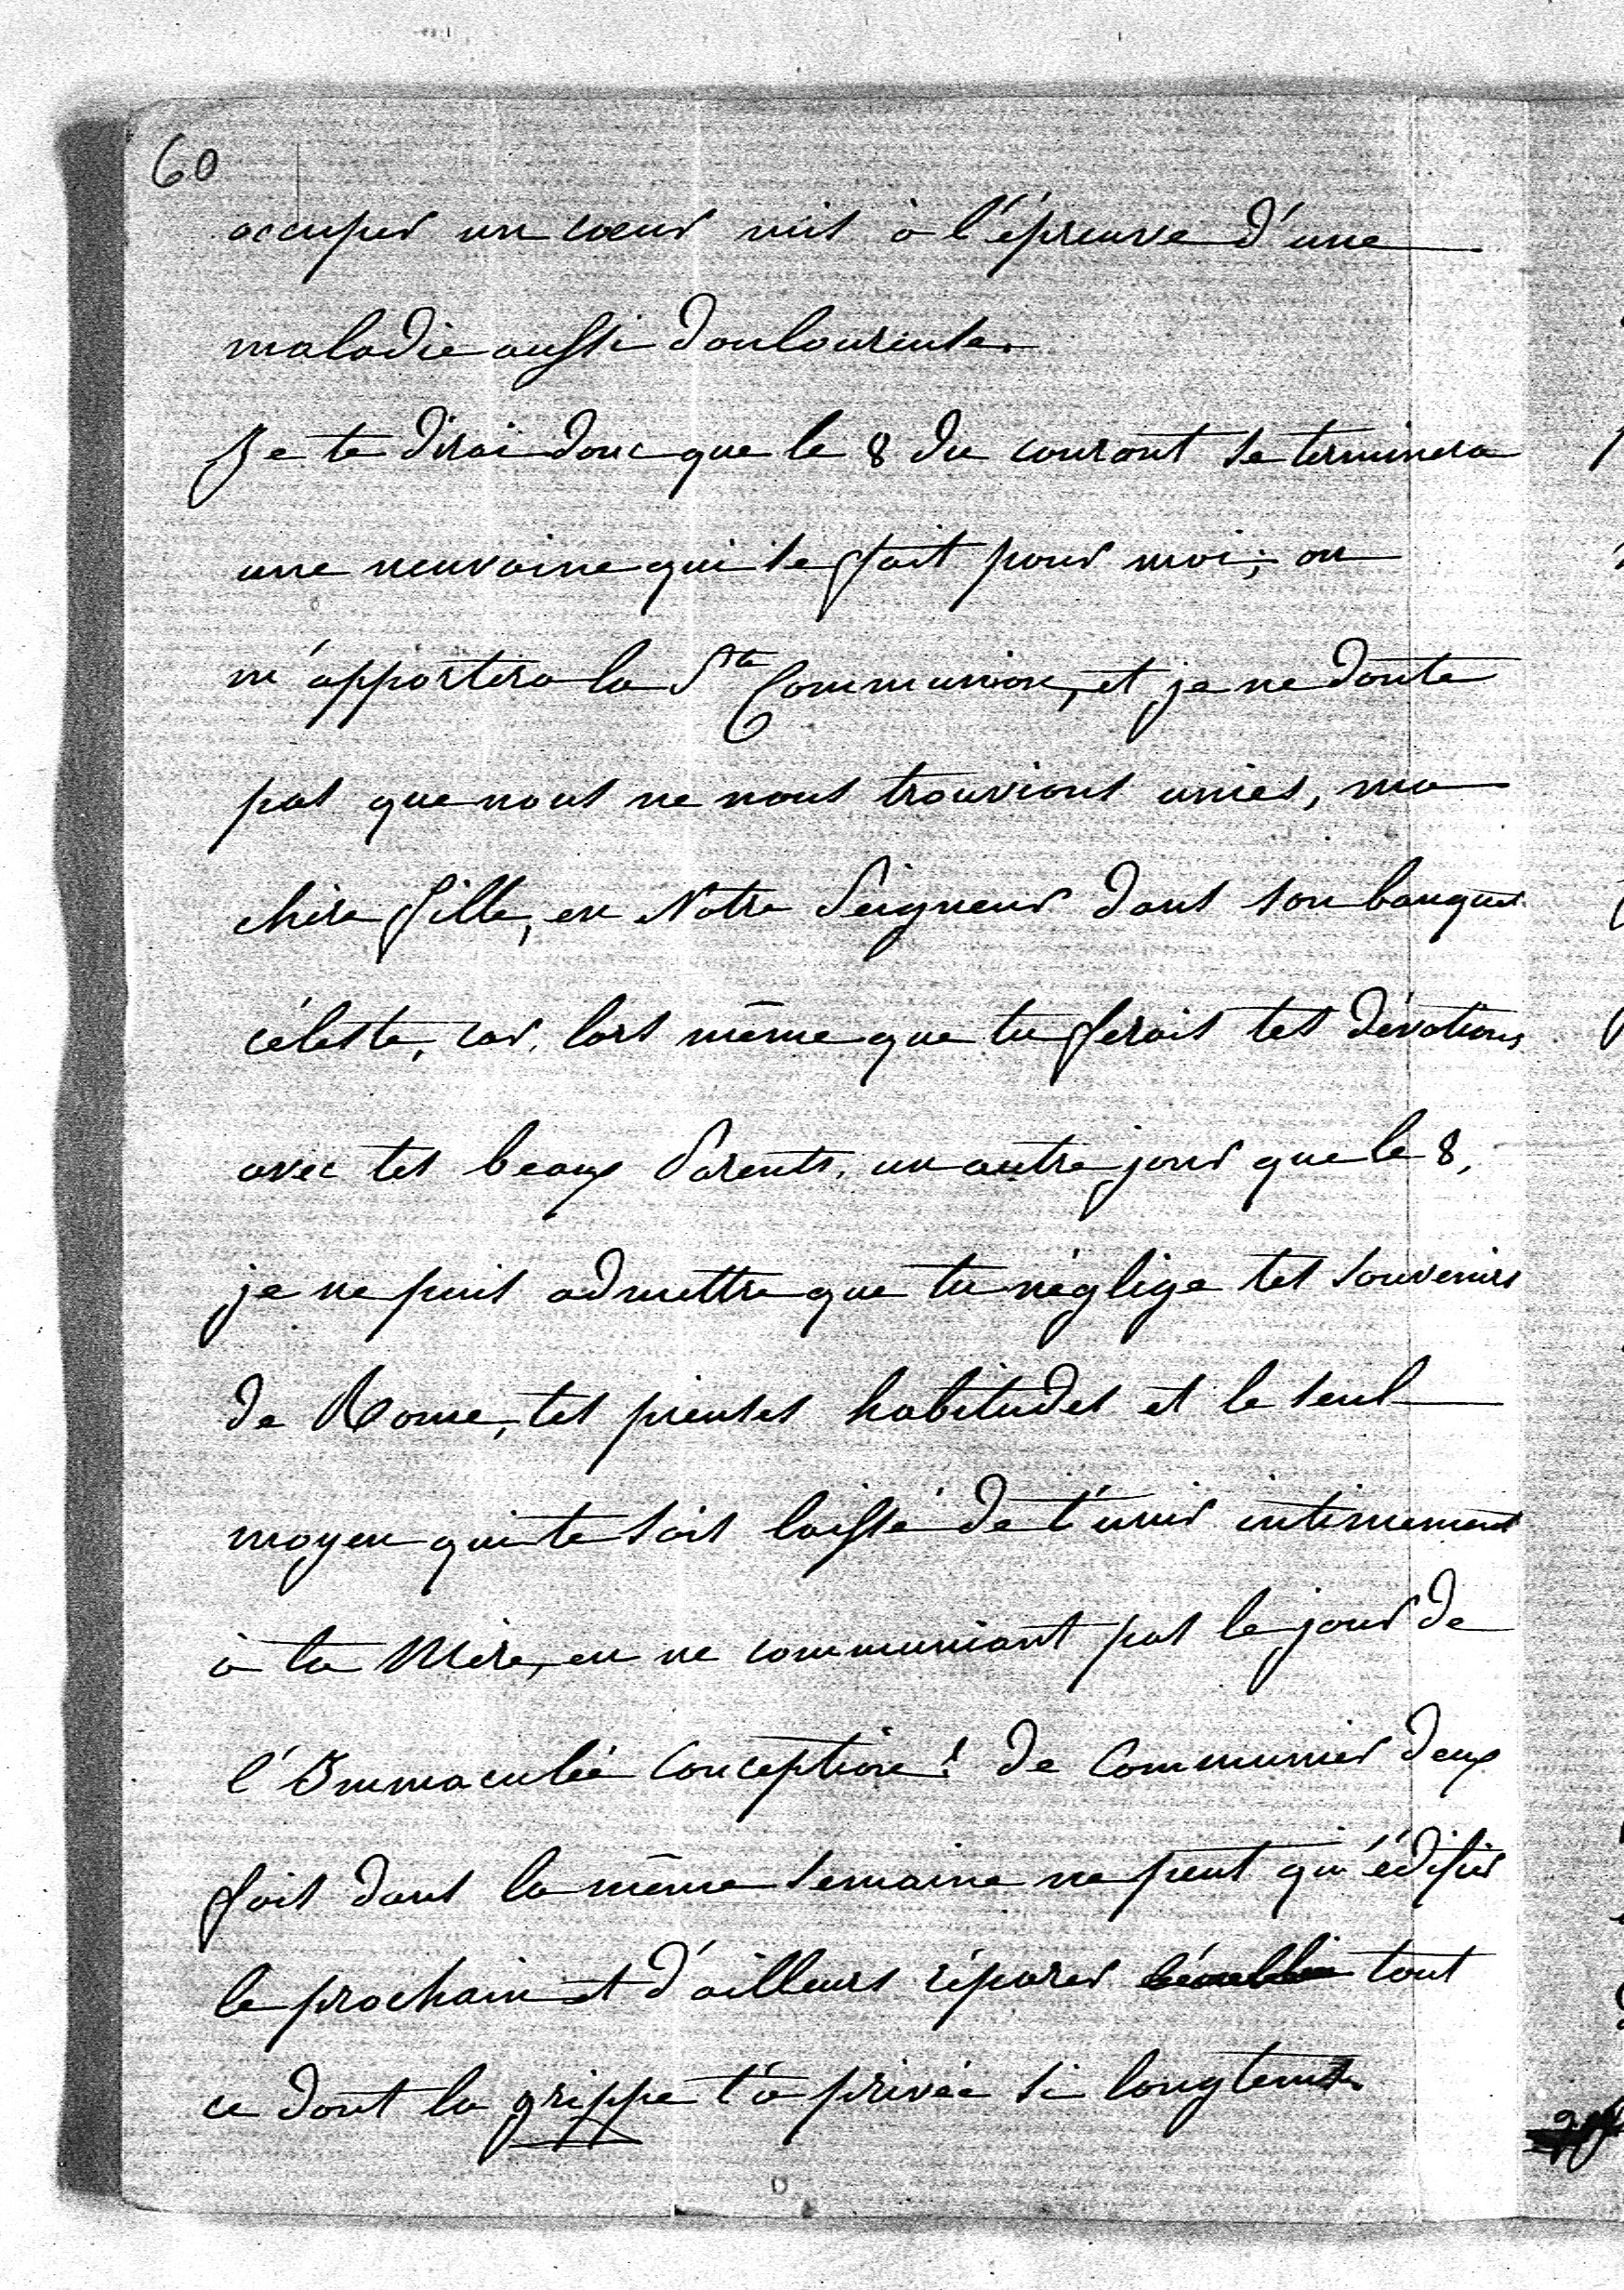 60
occuper un cœur mis à l'épreuve d'une
maladie aussi douloureuse.
Je te dirai donc que le 8 du courant se terminera
une neuvaine qui se fait pour moi; on
m'apportera la Ste Communion, et je ne doute
pas que nous ne nous trouvions unies, ma
chère fille, en Notre Seigneur dans son banquet
céleste, car, lors même que tu ferais tes dévotions
avec tes beaux Parents, un autre jour que le 8,
je ne puis admettre que tu néglige tes souvenirs
de Rome, tes pieuses habitudes et le seul
moyen qui te soit laissé de t'unir intimement
à ta Mère, en ne communiant pas le jour de
l'Immaculée Conception! de Communier deux
fois dans la même semaine ne peut qu'édifier
le prochain et d'ailleurs réparer tout
ce dont la grippe t'a privée si longtems.